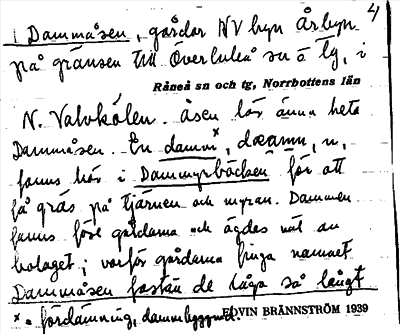 4
i Dammåsen, gårdar NV byn Årbyn
på gränsen till Överluleå sn o tg, i
Råneå sn och tg, Norrbottens län
N. Valvkölen. åsen lär ännu heta
Dammåsen. En damm x, dæamn, n,
fanns här i Dammyrbäcken för att
få gräs på tjärnen och myran. Dammen
fanns före gårdarna och ägdes väl av
bolaget; varför gårdarna finga namnet
Dammåsen fastän de låga så långt
x = fördämning, dammbyggnad.
EDVIN BRÄNNSTRÖM 1939